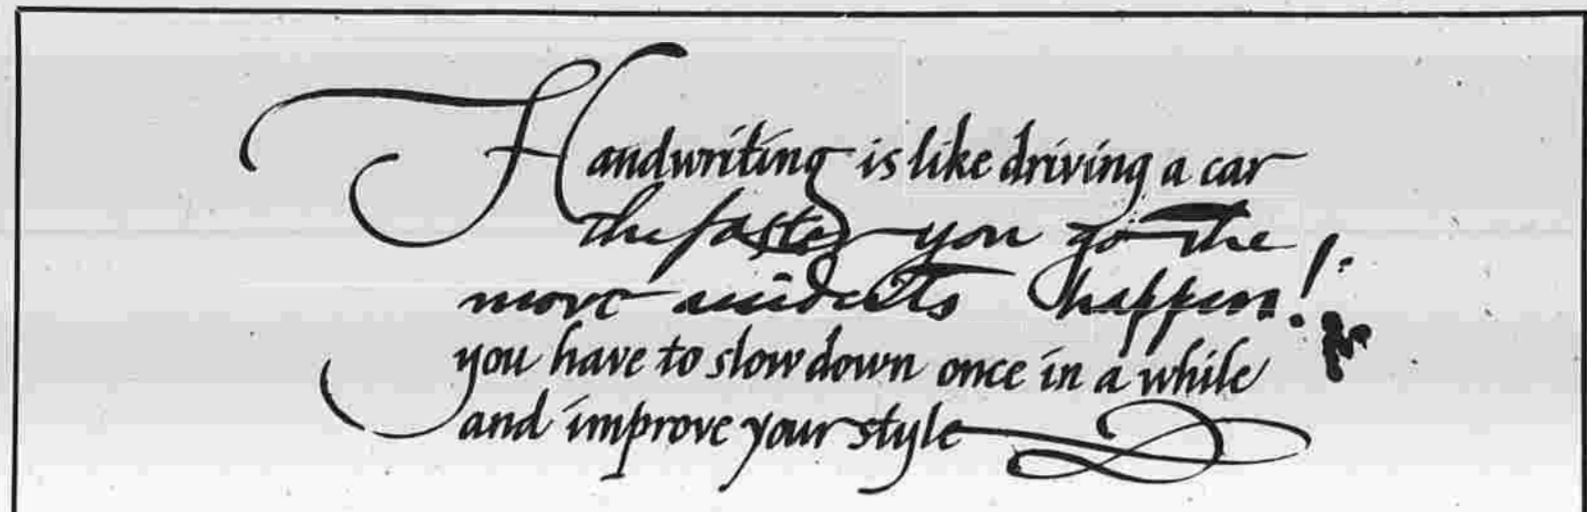 Handwriting is like driving a car
the faster you go the
more accidents happen!
you have to slow down once in a while
and improve your style